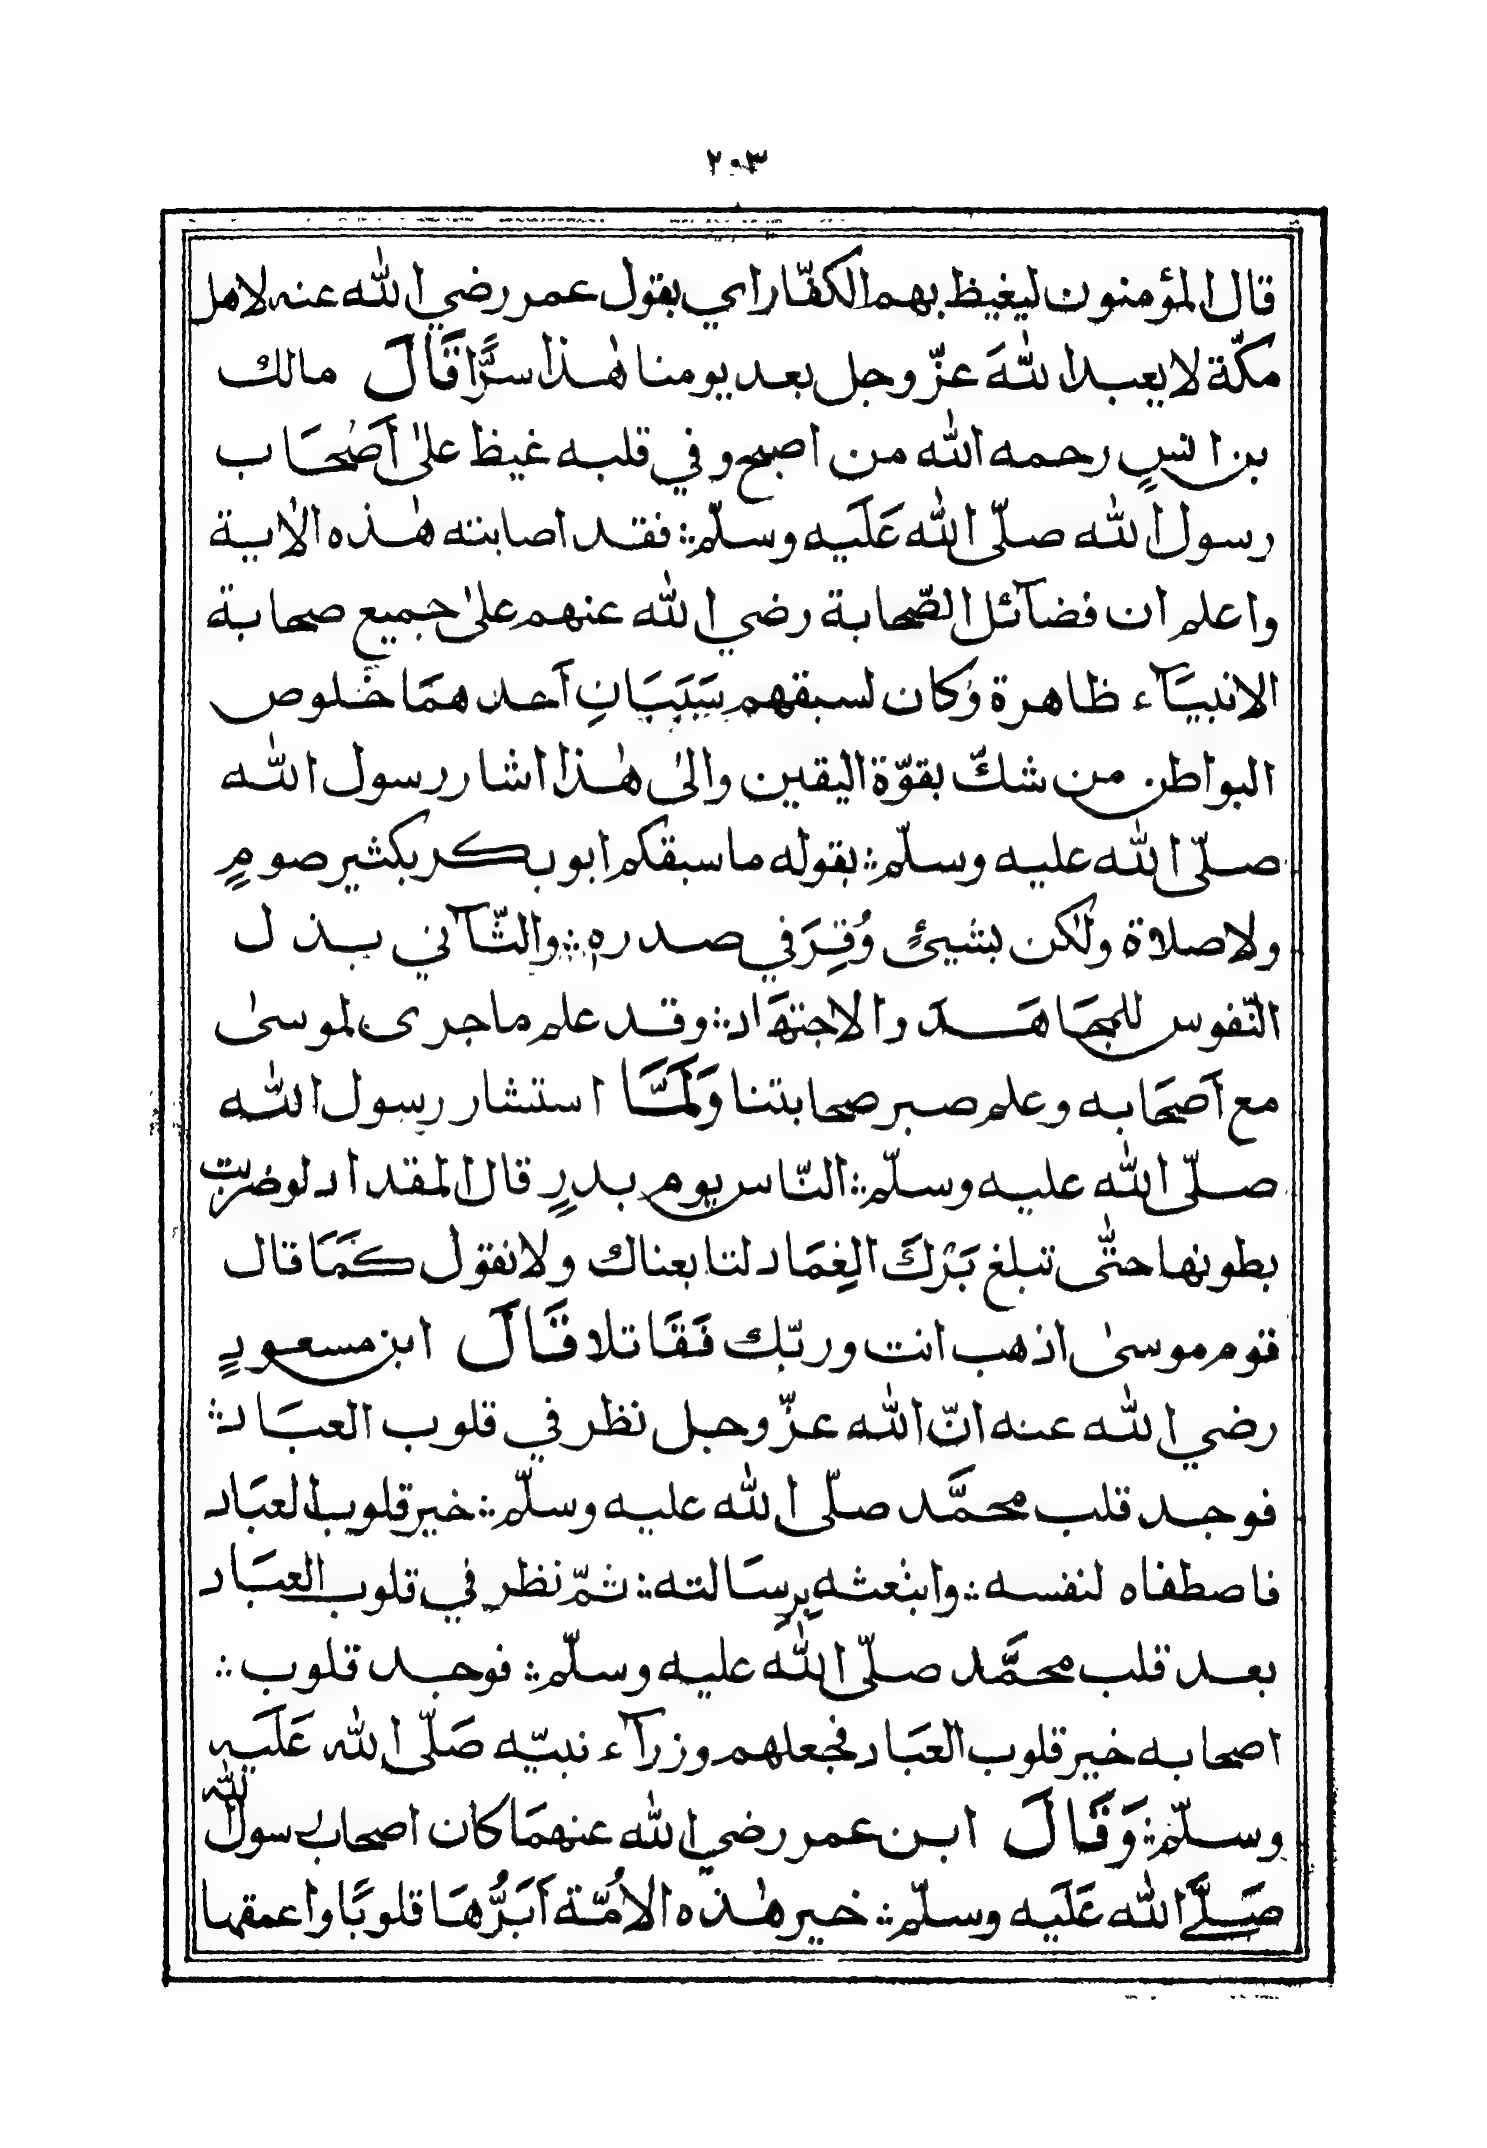 ٢٠٣
قال المؤمنون ليغيظ بهم الكفّار اي بقول عمر رضي الله عنه لاهل
مكّة لا يعبد الله عزّ وجل بعد يومنا هٰذا سرًّا قَالَ مالك
بن انسٍ رحمه الله من اصبح وفي قلبه غيظ علىٰ أَصْحَاب
رسول الله صلّى الله عَلَيه وسلّم؞ فقد اصابته هٰذه الاٰية
واعلم ان فضآئل الصّحابة رضي الله عنهم علىٰ جميع صحابة
الانبيَآء ظاهرة وكان لسبقهم سَبَبَانِ أَحد همَا خُلوص
البواطن من شكٍّ بقوّة اليقين والىٰ هٰذا اشار رسول الله
صلّى الله عليه وسلّم؞ بقوله ما سبقكم ابوبكر بكثير صومٍ
ولا صلاة ولٰكن بشيئٍ وُقِرَ في صدره؞ والثّآني بذل
النّفوس للمجَاهَدَة والاجتهَاد؞ وقد علم ما جرى لموسىٰ
مع أَصحَابه وعلم صبر صحابتنا وَلَمَّا استشار رسول الله
صلّى الله عليه وسلّم؞ النّاس يوم بدرٍ قال المقداد لوضربت
بطونها حتّٰى تبلغ بَرْكَ الغِمَاد لتابعناك ولا نقول كَمَا قال
قوم موسىٰ اذهب انت وربّك فَقَاتلا قَالَ ابن مسعودٍ
رضي الله عنه انّ الله عزّ وجل نظر في قلوب العبَاد؞
فوجد قلب محمَّد صلّى الله عليه وسلّم؞ خير قلوب العبَاد
فاصطفاه لنفسه؞ وابتعثه بِرِسَالته؞ ثمّ نظر في قلوب العبَاد
بعد قلب محمَّد صلّى الله عليه وسلّم؞ فوجد قلوب؞
اصحابه خير قلوب العبَاد فجعلهم وزرآء نبيّه صَلّى الله عَلَيه
وسلّم؞ وَقَالَ ابن عمر رضي الله عنهمَا كان اصحاب رسول الله
صَلَّى الله عَلَيه وسلّم؞ خير هٰذه الاُمّة أَبَرُّهَا قلوبًا واعمقها